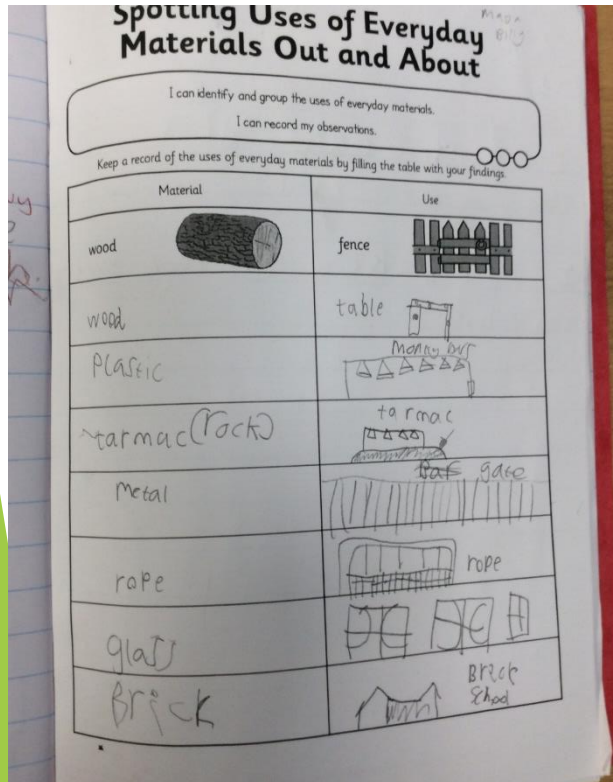 Spotting Uses of Everyday
Materials Out and About
I can identify and group the uses of everyday materials.
I can record my observations.
Keep a record of the uses of everyday materials by filling the table with your findings.
Material Use
wood fence
wood table
Plastic
tarmac (rock) tarmac
Metal gate
rope rope
glass
Brick Brick